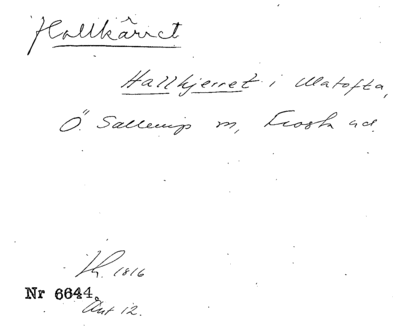 Hallkärret
Hallkjerret i Matofta,
Ö. Sallerup sn, Frosta hd.
Lh. 1816
Nr 6644.
Akt 12.